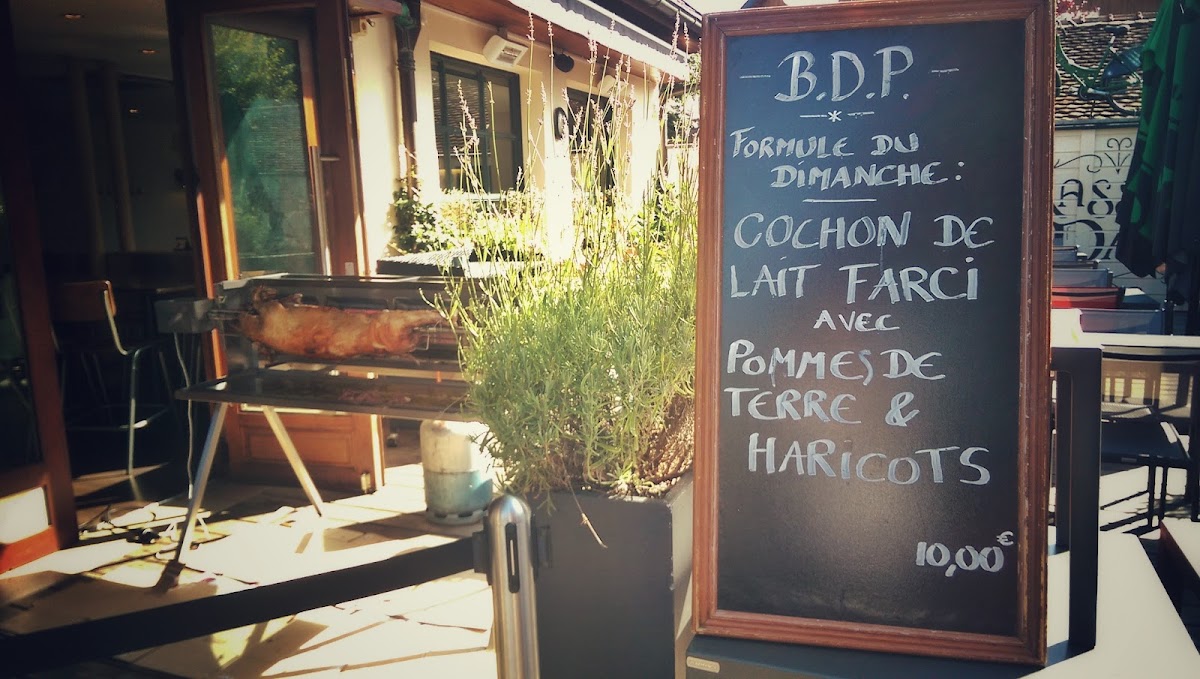 B.D.P.
FORMULE DU
DIMANCHE:
COCHON DE
LAIT FARCI
AVEC
POMMES DE
TERRE &
HARICOTS
10,00€